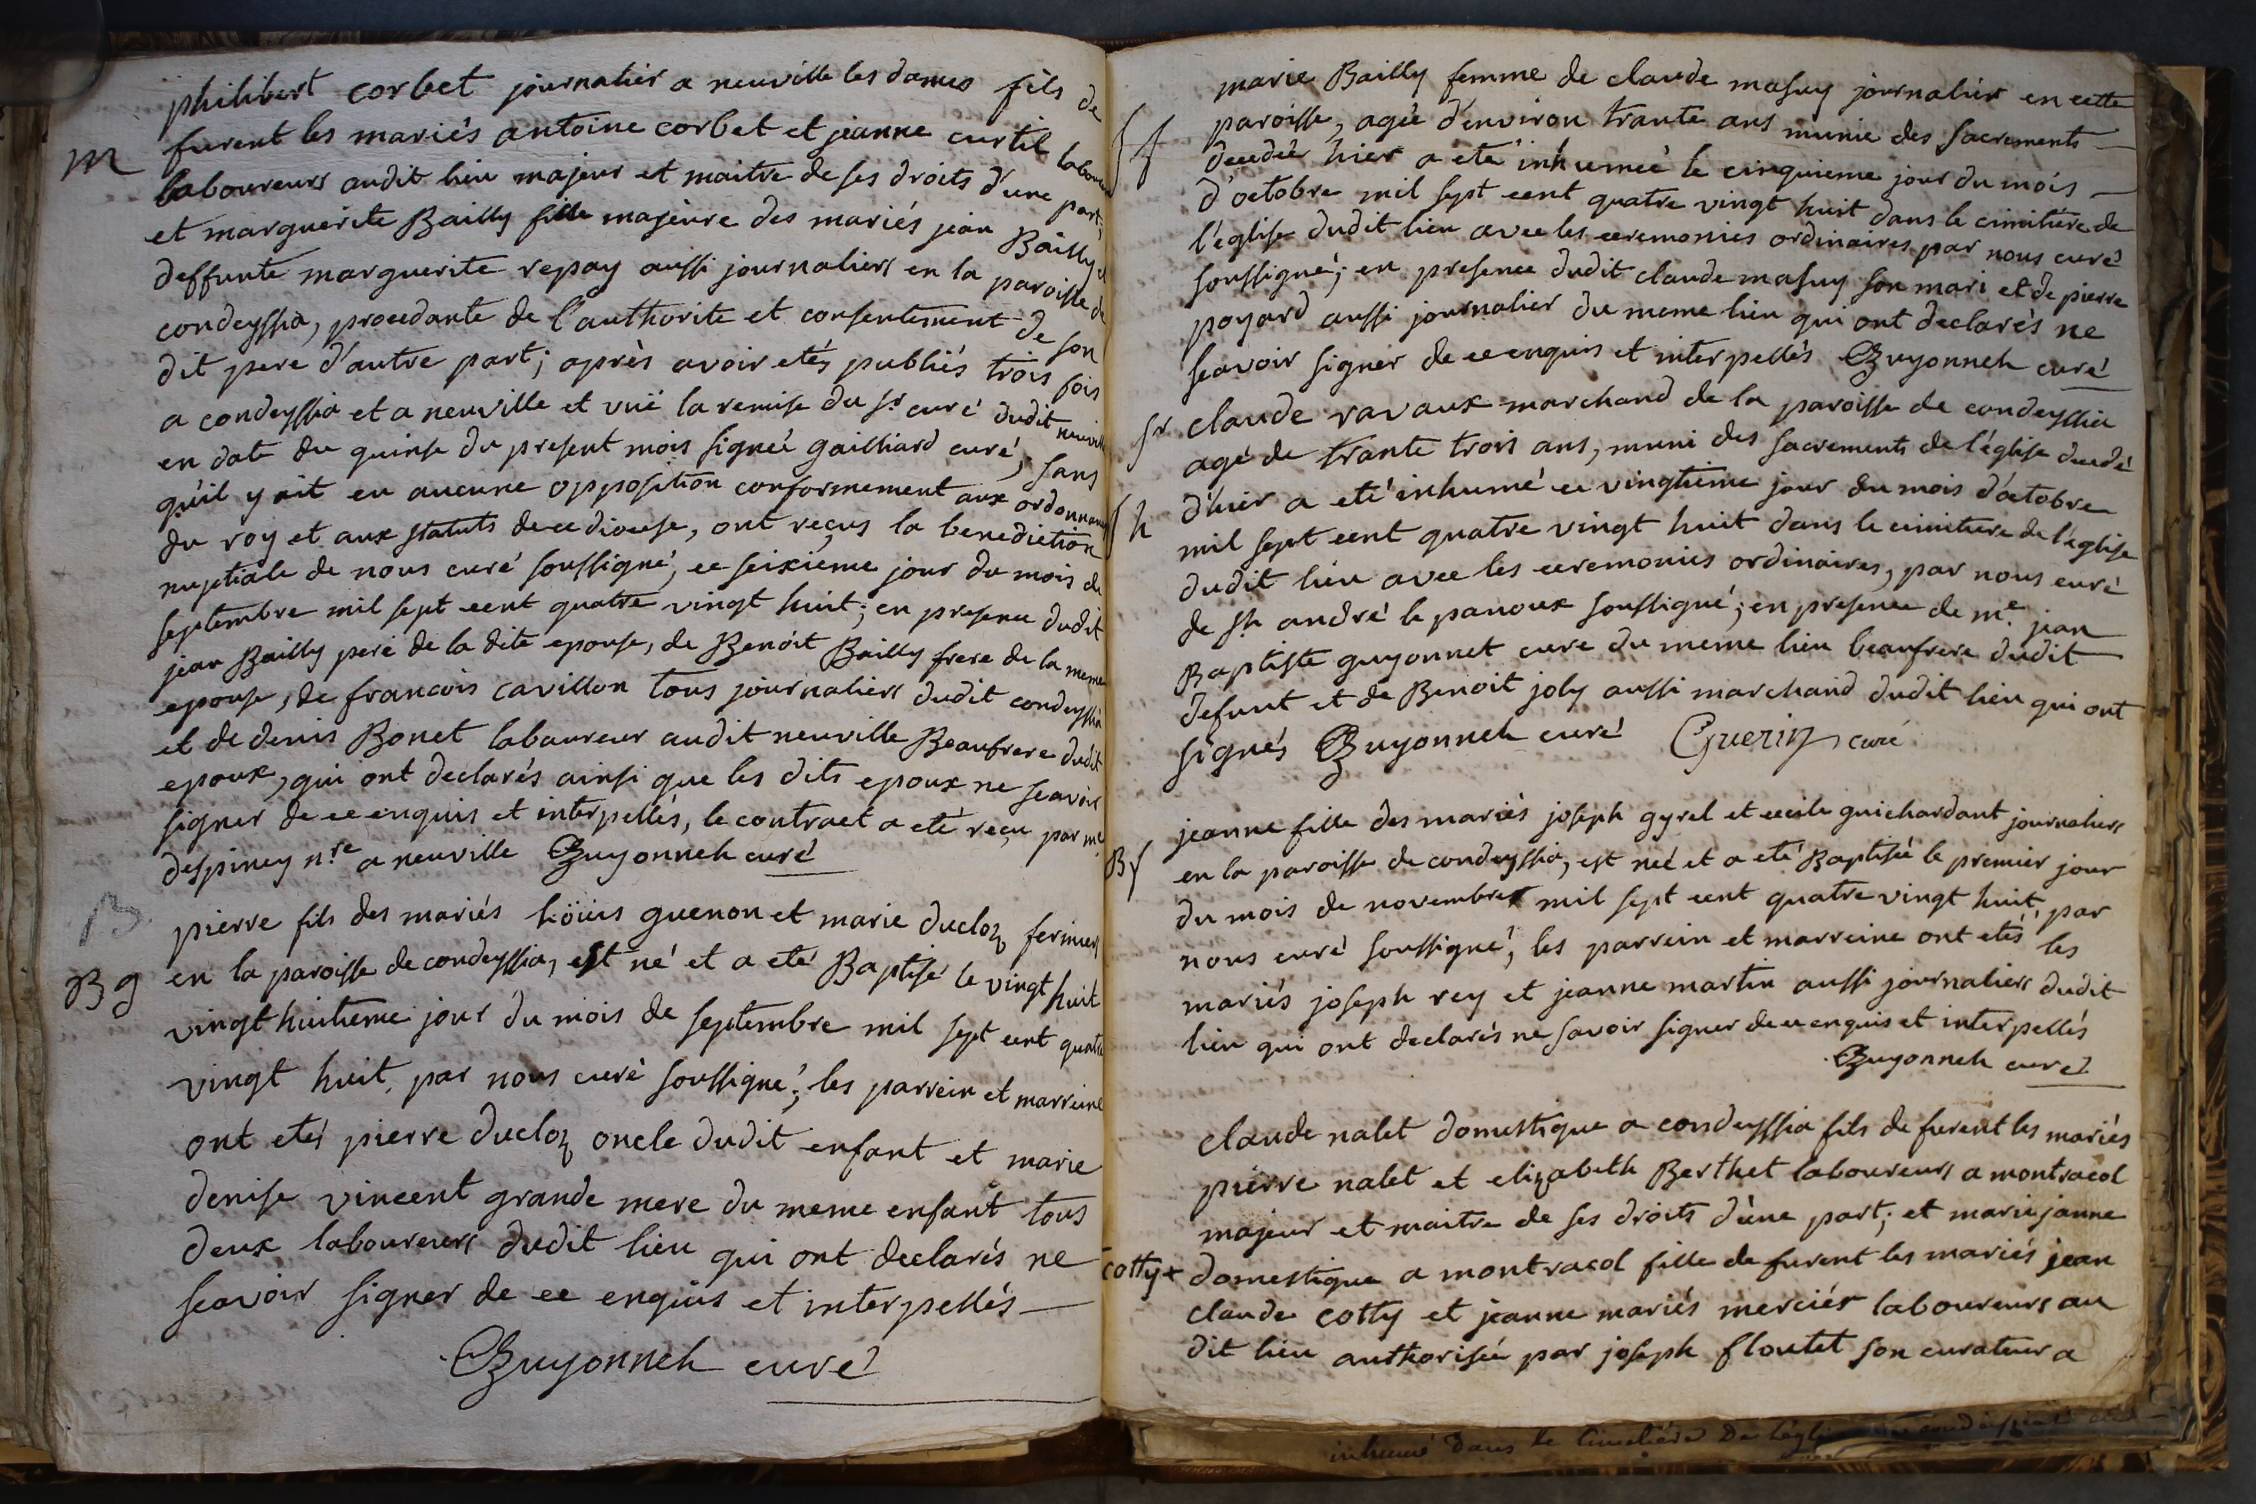 philibert corbet journalier a neuville les dames fils de
m
furent les mariés antoine corbet et jeanne curtil
laboureurs audit lieu majeur et maitre de ses droits d'une part,
et marguerite Bailly fille majeure des mariés jean Bailly et
deffunte marguerite repay aussi journaliers en la paroisse de
condeyssia, procedante de l'authorite et consentement de son
dit pere d'autre part; après avoir etés publiés trois fois
a condeyssia et a neuville et vuë la remise du sr curé dudit neuville
en dat du quinse du present mois signeé gailliard curé, sans
qu'il y ait eu aucune opposition conformement aux ordonnances
du roy et aux statuts de ce diocese, ont reçus la benediction
nuptiale de nous curé soussigné, ce seixieme jour du mois de
septembre mil sept cent quatre vingt huit; en presence dudit
jean Bailly pere de la dite epouse, de Benoit Bailly frere de la meme
epouse, de francois cavillon tous journaliers dudit condeyssia
et de denis Bonet laboureur audit neuville Beaufrere dudit
epoux, qui ont declarés ainsi que les dits epoux ne scavoir
signer de ce enquis et interpellés, le contract a eté reçu par me
despiney n.re a neuville Guyonneh curé
B
pierre fils des mariés loüis guenon et marie ducloz fermiers
B g
en la paroisse de condeyssia, est né et a eté Baptisé le vingt huit
vingt huitieme jour du mois de septembre mil sept cent quatre
vingt huit, par nous curé soussigné; les parrein et marreine
ont etés pierre ducloz oncle dudit enfant et marie
denise vincent grande mere du meme enfant tous
deux laboureurs dudit lieu qui ont declarés ne
scavoir signer de ce enquis et interpellés
Guyonneh curé
marie Bailly femme de claude masuy journalier en cette
S f
paroisse, ageé d'environ trante ans munie des sacrements
decedeé hier a eté inhumeé le cinquieme jour du mois
d'octobre mil sept cent quatre vingt huit dans le cimitiere de
l'eglise dudit lieu avec les ceremonies ordinaires par nous curé
soussigné; en presence dudit claude masuy son mari et de pierre
poyard aussi journalier du meme lieu qui ont declarés ne
scavoir signer de ce enquis et interpellés Guyonneh curé
Sr
claude ravaux marchand de la paroisse de condeyssia
agé de trante trois ans, muni des sacrements de l'église decedé
S h
d'hier a eté inhumé ce vingtieme jour du mois d'octobre
mil sept cent quatre vingt huit dans le cimitiere de l'eglise
dudit lieu avec les ceremonies ordinaires, par nous curé
de st andré le panoux soussigné; en presence de me. jean
Baptiste guyonnet cure du meme lieu beaufrere dudit
defunt et de Benoit joly aussi marchand dudit lieu qui ont
signés Guyonneh curé Guerin curé
jeanne fille des mariés joseph gyrel et cecile guichardant journaliers
B f
en la paroisse de condeyssia, est neé et a eté Baptisée le premier jour
du mois de novembre mil sept cent quatre vingt huit, par
nous curé soussigné, les parrein et marreine ont etés les
mariés joseph rey et jeanne martin aussi journaliers dudit
lieu qui ont declarés ne savoir signer de ce enquis et interpellés
Guyonneh curé
claude nalet domestique a condeyssia fils de furent les mariés
pierre nalet et elizabeth Berthet laboureurs a montracol
majeur et maitre de ses droits d'une part; et marie janne
cotty +
domestique a montracol fille de furent les mariés jean
claude cotty et jeanne mariés merciér laboureurs au
dit lieu authorisée par joseph floutet son curateur a
inhumé dans le Cimetière De l'église